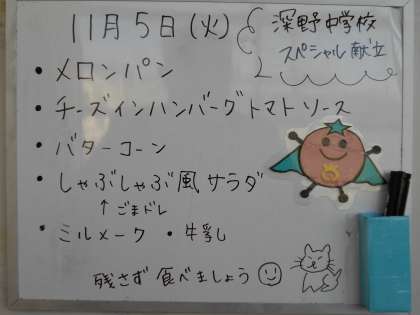 11月5日(火)
深野中学校
スペシャル献立
・メロンパン
・チーズインハンバーグトマトソース
・バターコーン
・しゃぶしゃぶ風サラダ
↑ごまドレ
・ミルメーク ・牛乳
残さず食べましょう